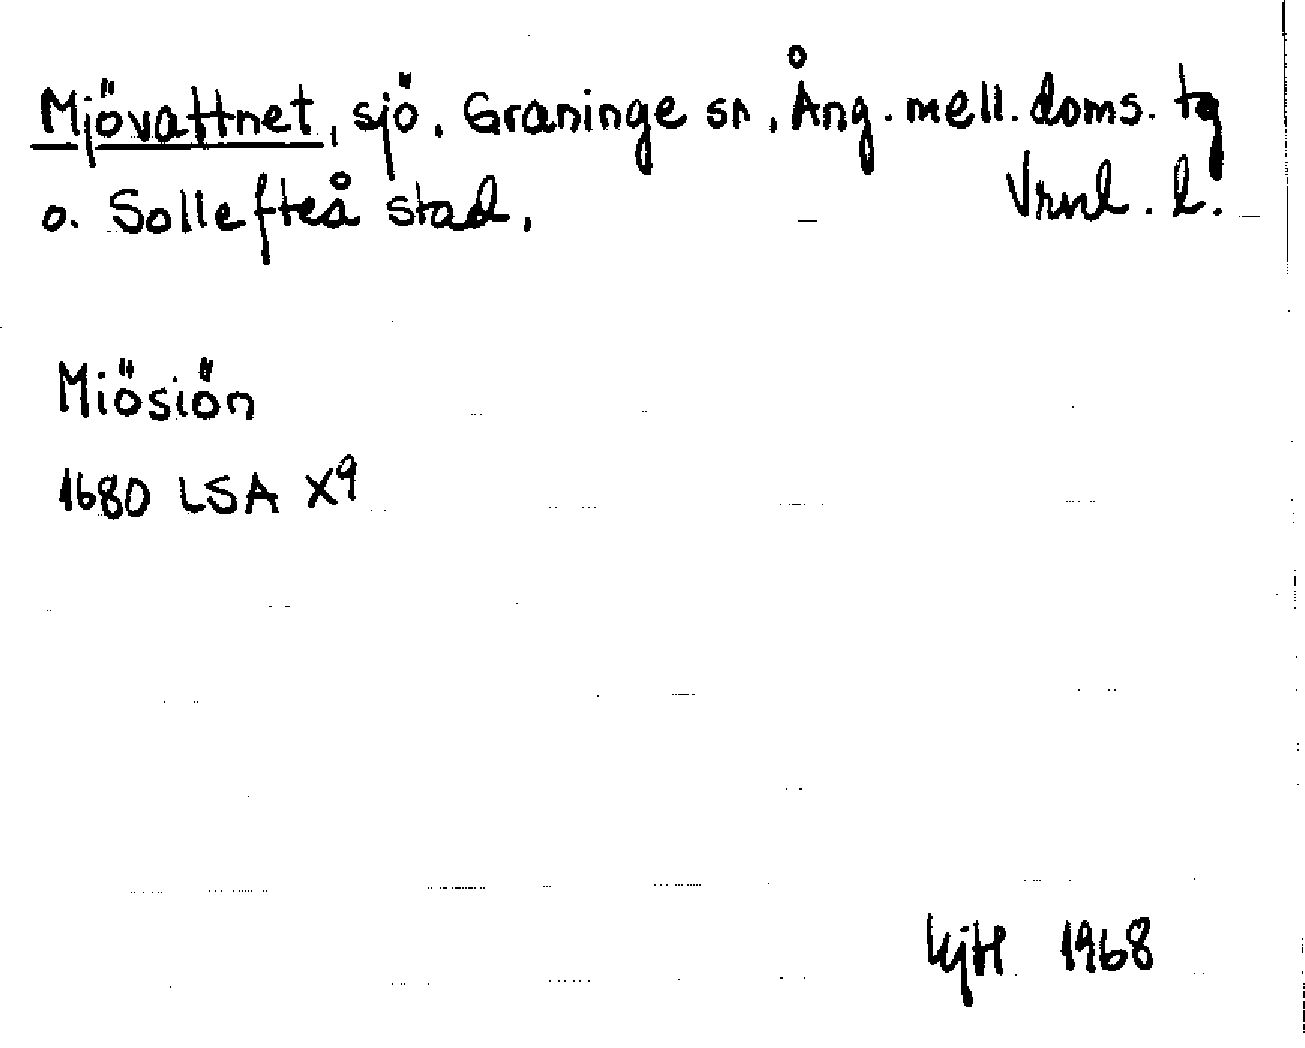 Mjövattnet, sjö. Graninge sn. Ång. mell. doms. tg
o. Sollefteå stad. Vrnl. l.
Miösiön
1680 LSA X9
KjH 1968